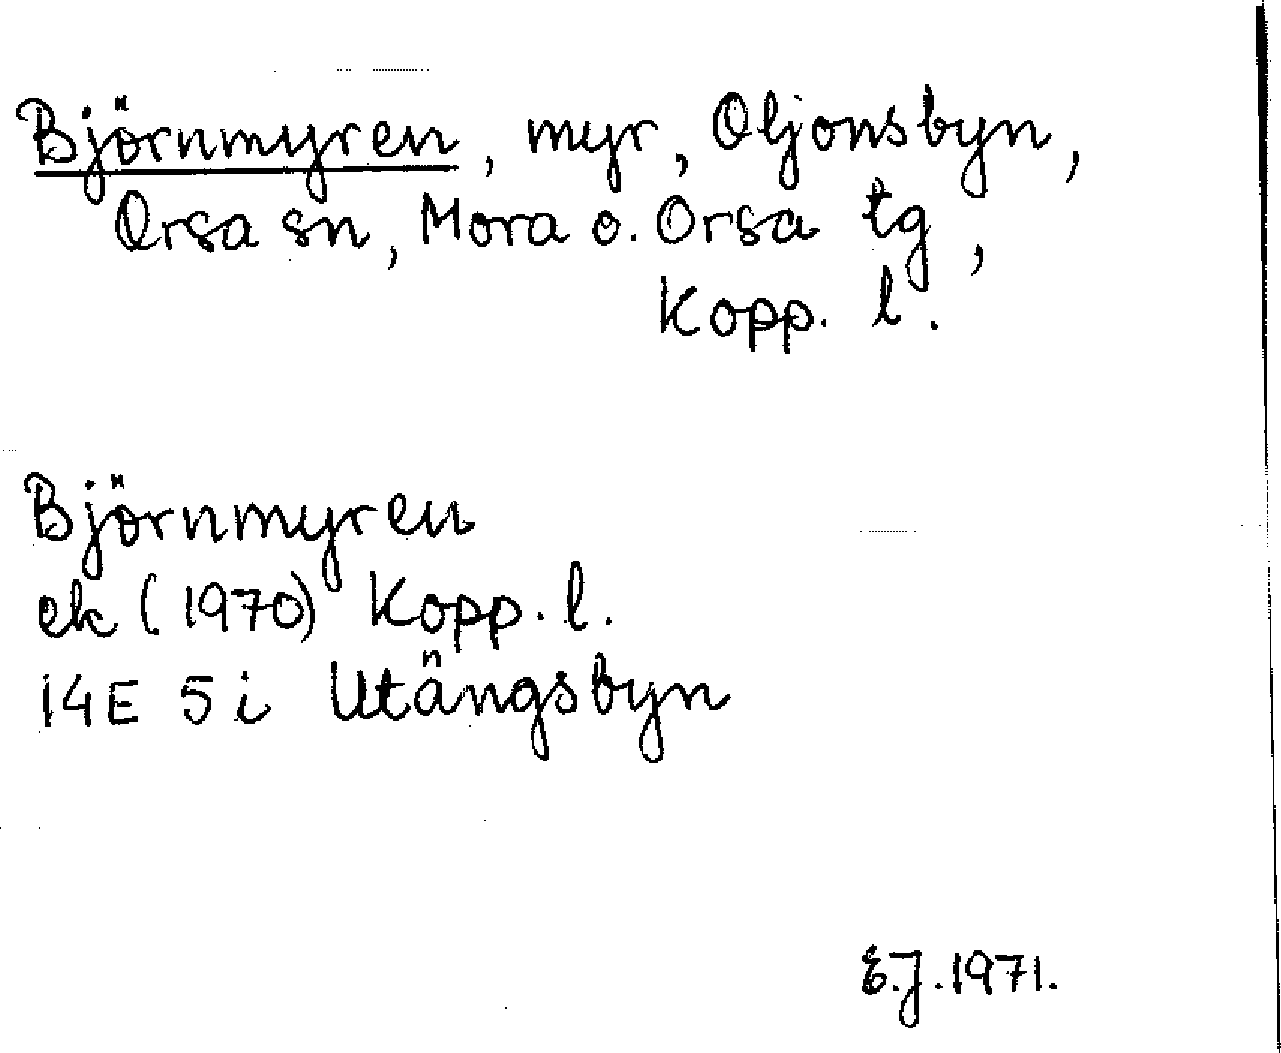 Björnmyren, myr, Oljonsbyn,
Orsa sn, Mora o. Orsa tg,
Kopp. l.
Björnmyren
ek (1970) Kopp. l.
14E 5i Utängsbyn
E.J. 1971.